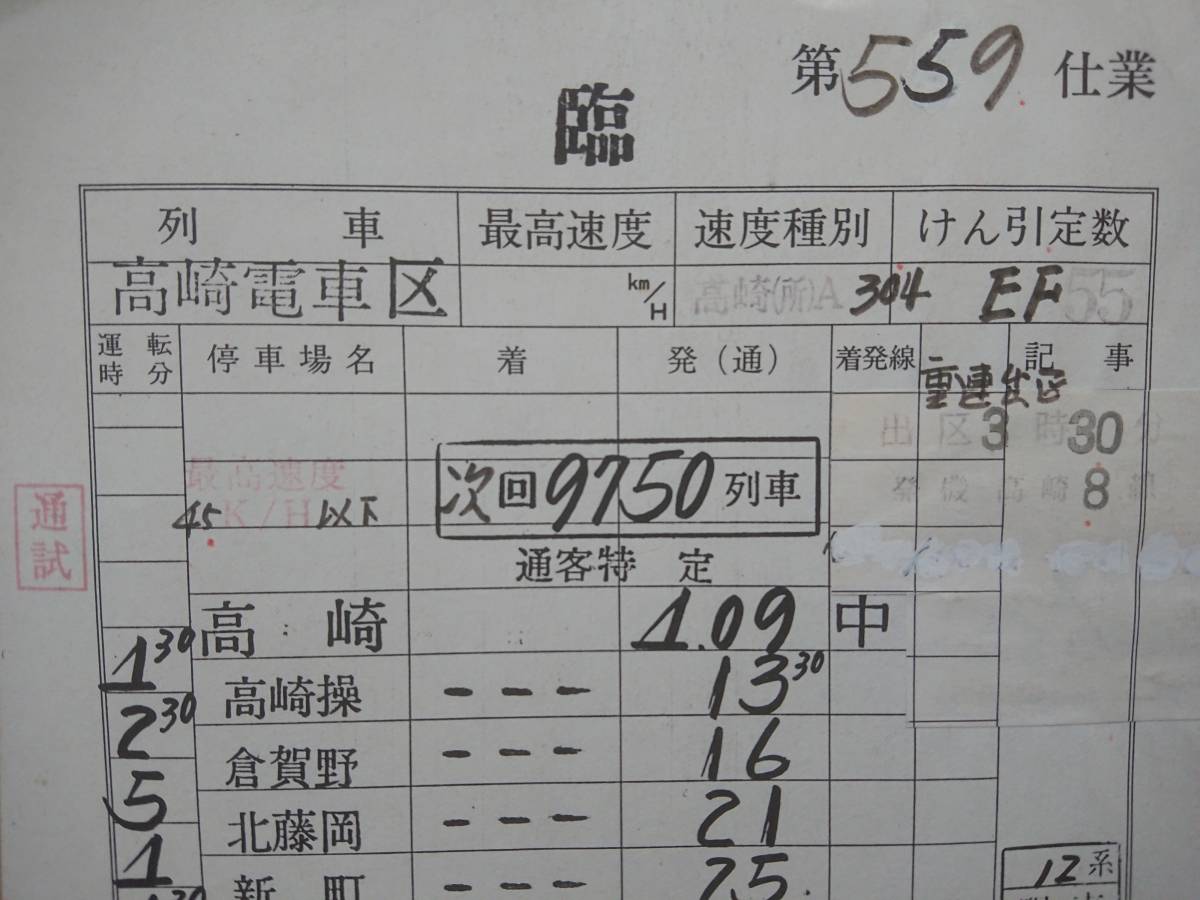 第559仕業
臨
列車 最高速度 速度種別 けん引定数
高崎電車区 km/H 高崎(所)A 304 EF55
運転時分 停車場名 着 発（通） 着発線 記事
重連出区
出区3時30分
最高速度
次回9750列車
8線
45K/H以下
通試
通客特定
高崎 1.09 中
1 30
高崎操 --- 13 30
2 30
倉賀野 --- 16
5
北藤岡 --- 21
1
新町 --- 25.
12系